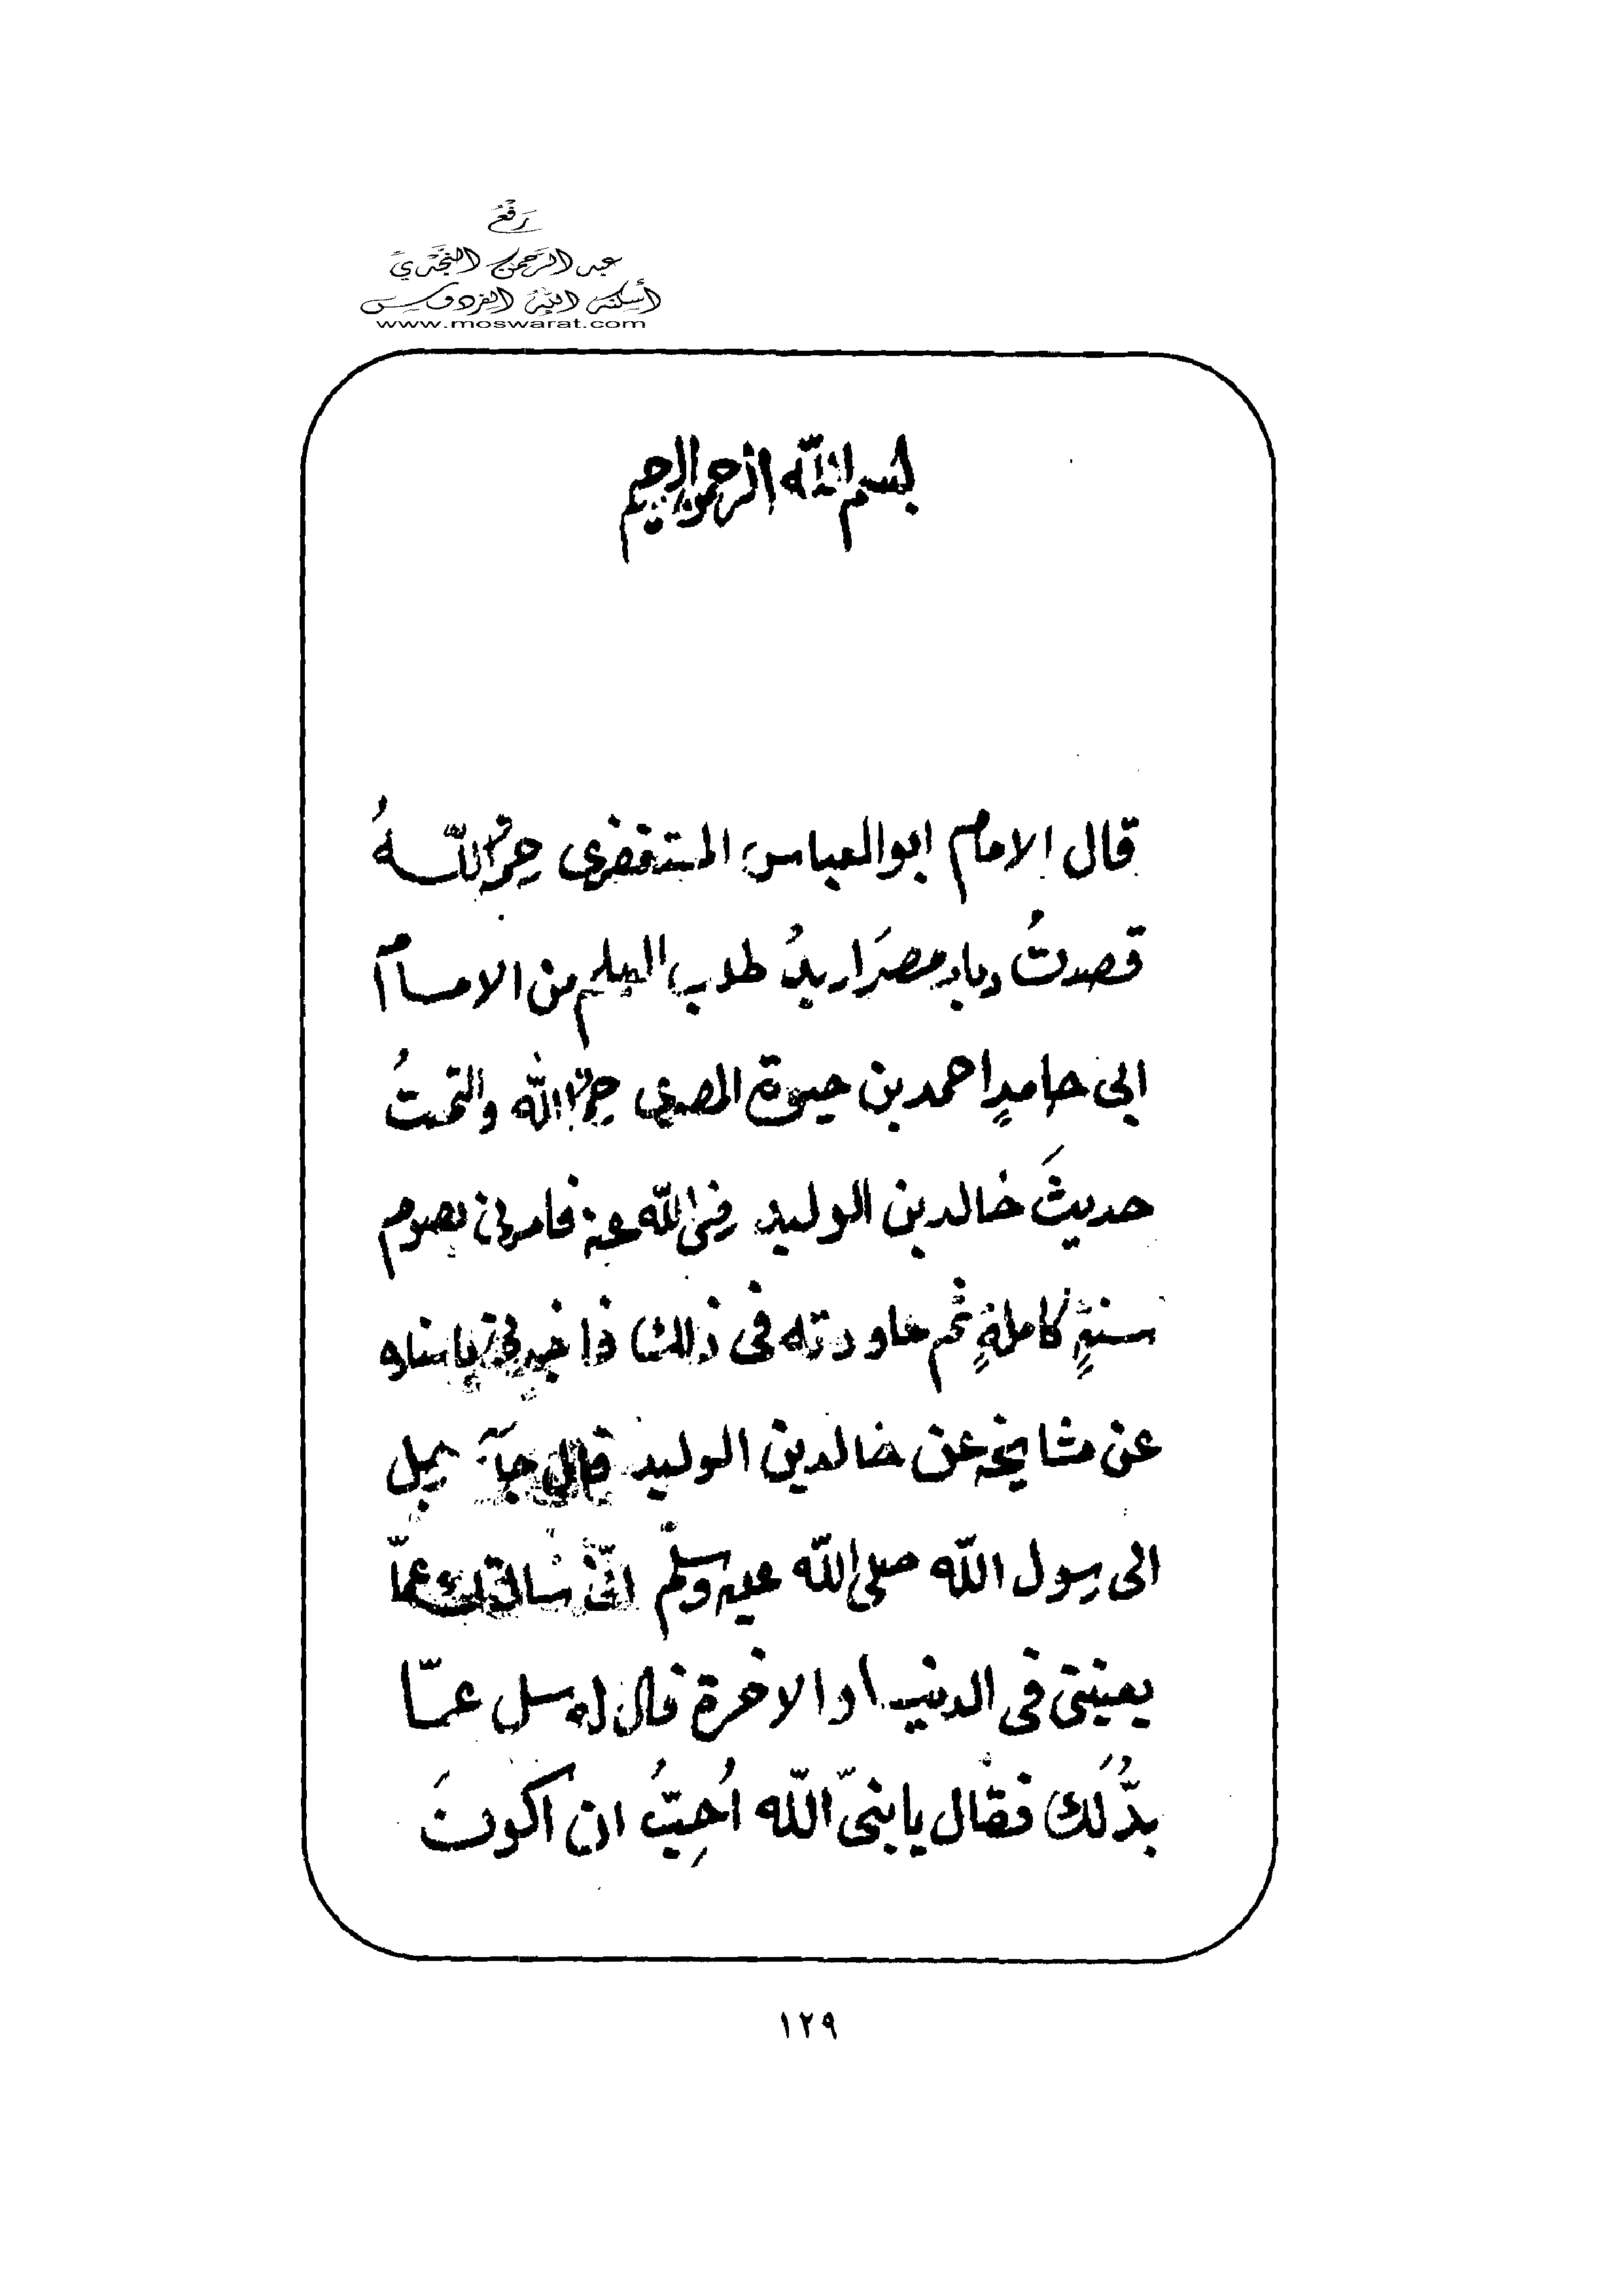 رَفْعُ
عبد الرَّحمن النَّجْدِيِّ
أسكنه اللهُ الفردوس
www.moswarat.com
بسم الله الرحمن الرحيم
قال الامام ابو العباس المستغفرى رحمة اللهُ
قصدتُ ديار مصرَ اريدُ طلب العلم من الامام
ابى حامدٍ احمد بن حيوة المصرى رحمه الله والتمستُ
حديثَ خالد بن الوليد رضى الله عنه فامرنى بصوم
سنةٍ كاملةٍ ثم عاودته فى ذلك فاخبرنى باسناده
عن مشايخه عن خالد بن الوليد قال جآء رجل
الى رسول الله صلى الله عليه وسلم انّى سائلك عمّا
يعنينى فى الدنيا والاخرة فقال له سل عمّا
بدَالَك فقال يا نبىّ الله اُحِبُّ ان اكونَ
١٢٩